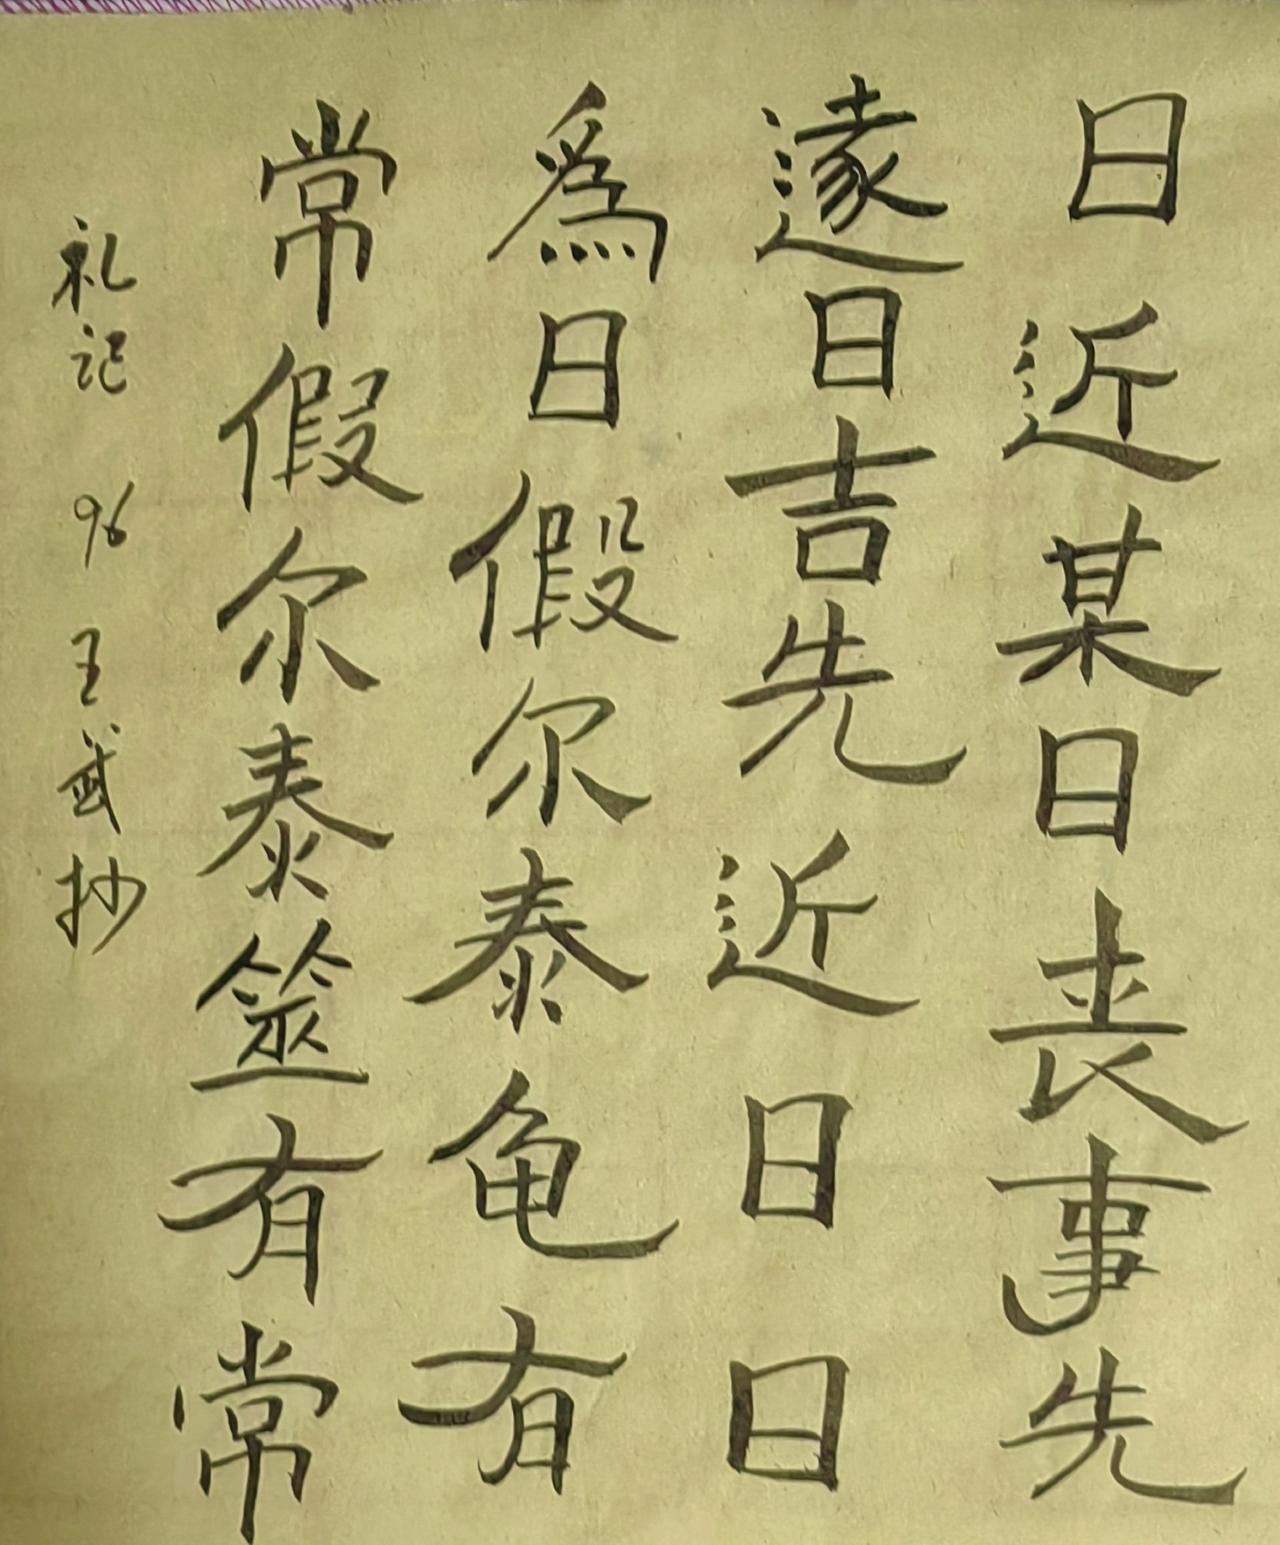 日近某日丧事先
遠日吉先近日日
爲日假尔泰龟有
常假尔泰筮有常
礼记 96 王斌抄